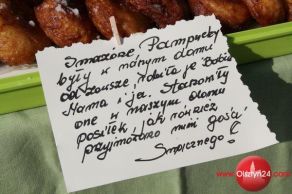 Smażone Pampuchy
były w moim domu
od zawsze, robiła je Babcia
Mama i ja. Stanowiły
one w naszym domu
posiłek, jak również
przyjmowano nimi gości
Smacznego!
Olsztyn24.com